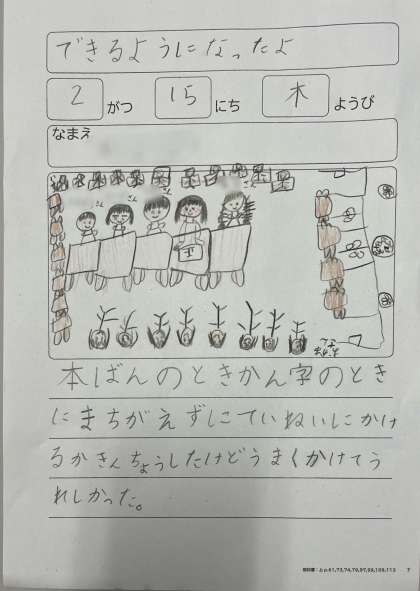 できるようになったよ
2 がつ 15 にち 木 ようび
なまえ
さん さん さん さん
本ばんのときかん字のとき
にまちがえずにていねいにかけ
るかきんちょうしたけどうまくかけてう
れしかった。
7